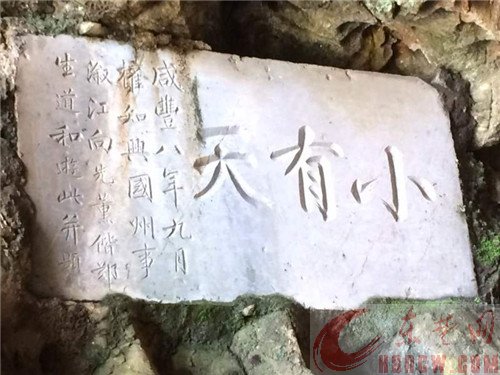 小有天
咸豐八年九月
權知興國州事
溆江向先薰偕鄒
生道和遊此并題
东楚网
HSDCW.COM